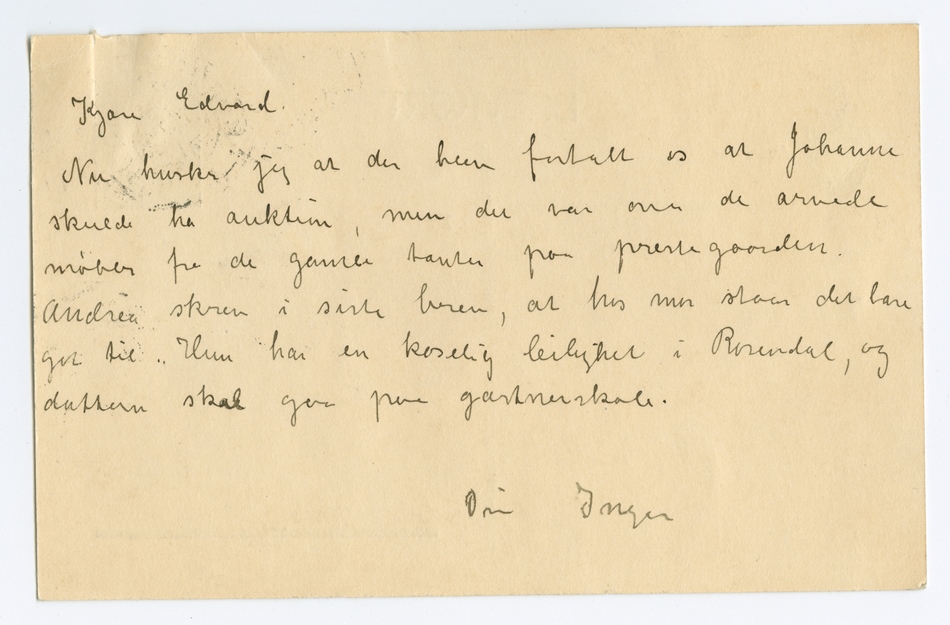 Kjære Edvard.
Nu husker jeg at der blev fortalt os at Johanne
skulde ha auktion, men det var over de arvede
møbler fra de gamle tanter paa prestegaarden.
Andrea skrev i siste brev, at hos mor staar det bare
got til. Hun har en koselig leilighet i Rosendal, og
datteren skal gaa paa gartnerskole.
Din Inger